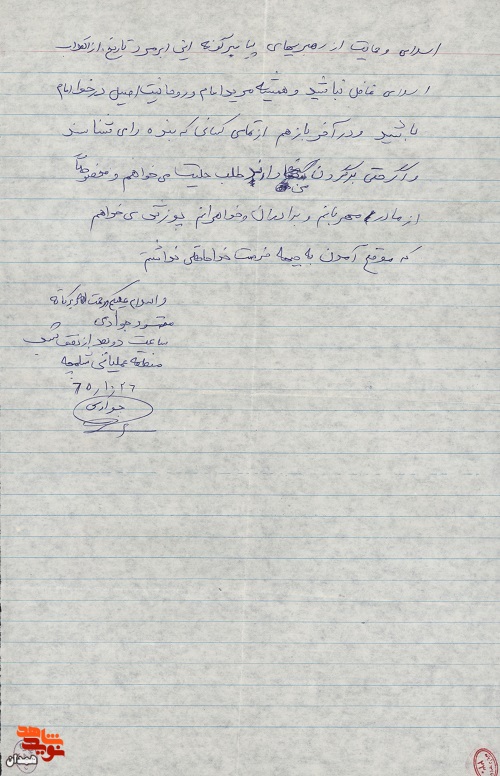 اسلامی و حمایت از رهبریهای پیامبرگونه این ابرمرد تاریخ، از انقلاب
اسلامی غافل نباشید و همیشه مرید امام و روحانیت اصیل در خط امام
باشید و در آخر باز هم از تمامی کسانی که بنده را می شناسند
و اگر حقی بر گردن من دارند طلب حلیت می خواهم و مخصوصاً
از مادر مهربانم و برادران و خواهرانم پوزش می خواهم
که موقع آمدن به جبهه فرصت خداحافظی نداشتم
والسلام علیکم و رحمت الله و برکاته
جوادی
ساعت دو بعد از نصف شب
منطقه عملیاتی شلمچه
۶۵/۱۰/۲۶
جوادی
نوید شاهد
همدان